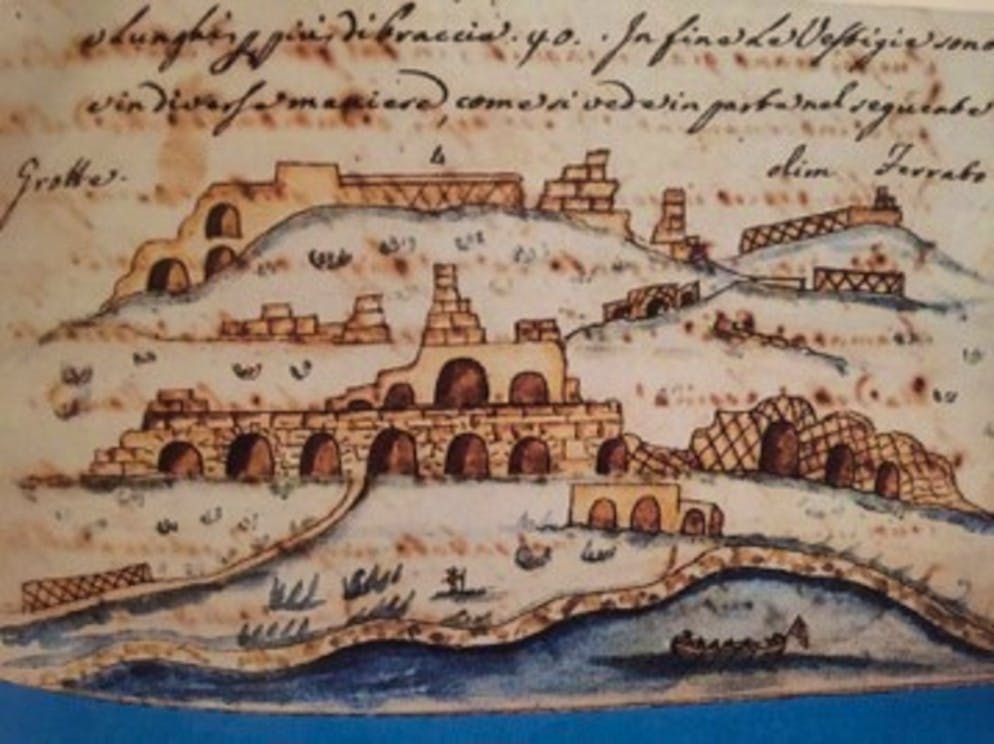 e Lunghi p più di braccia. 40. . In fine Le Vestigie sono
e in diverse maniere, come si vede in parte nel seguente
Grotte.
4
olim Terrabo